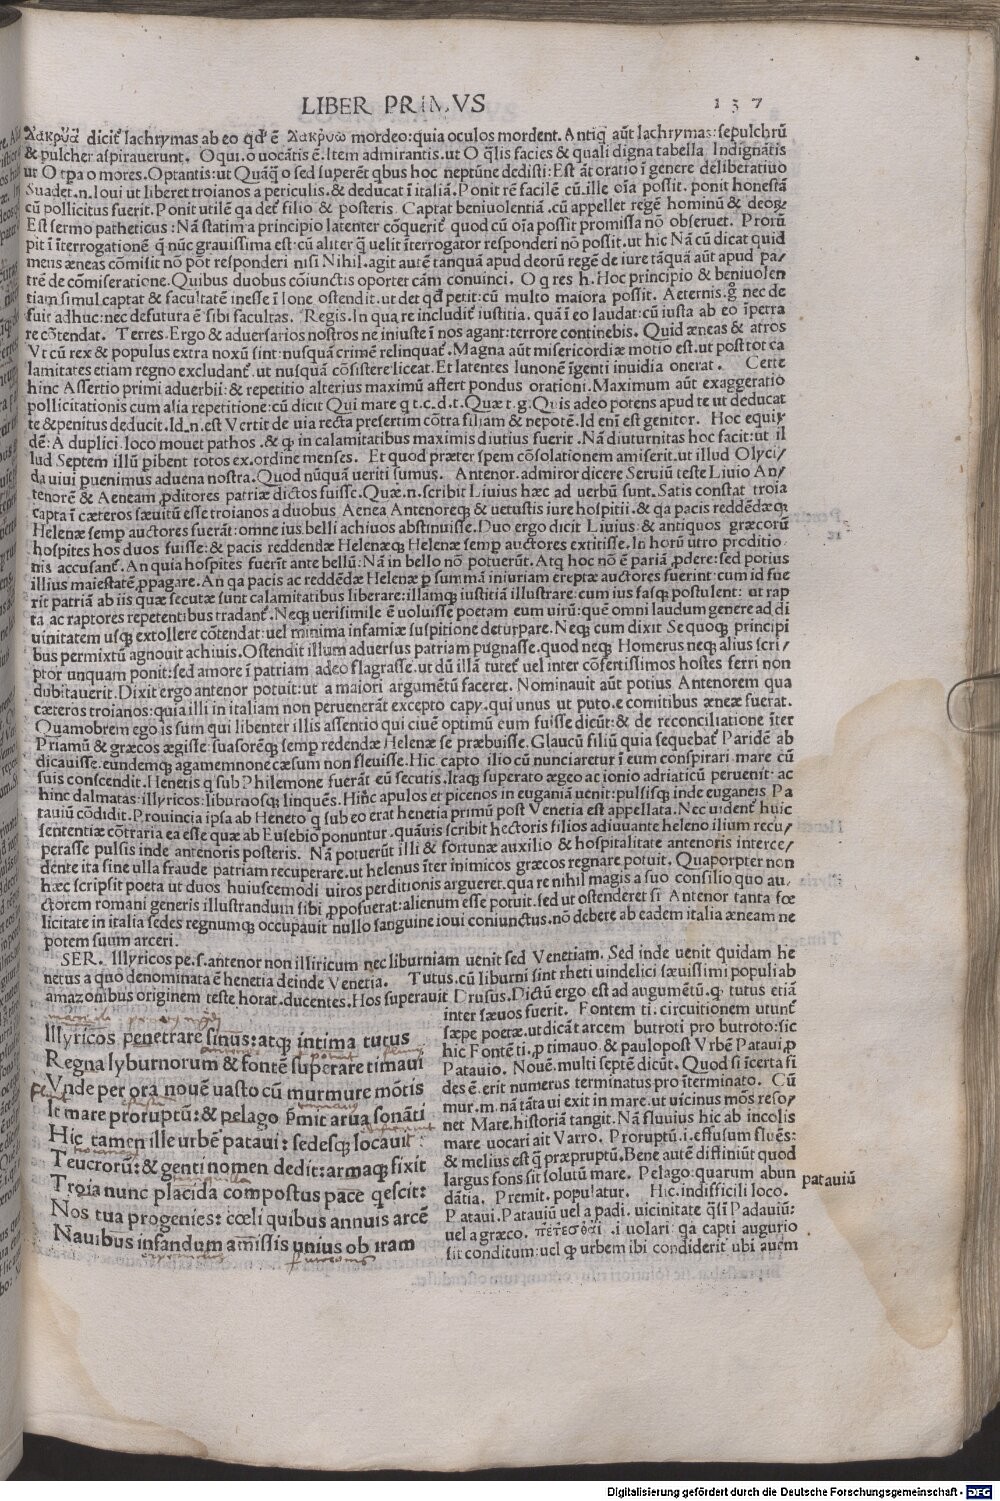 LIBER PRIMVS 137
λακρύα dicit̃ lachrymas ab eo qđ ē λακρύω mordeo: quia oculos mordent. Antiq̃ aũt lachrymas: sepulchrũ
& pulcher aspirauerunt. O qui. o uocãtis ē. Item admirantis. ut O q̃lis facies & quali digna tabella Indignãtis
ut O tpa o mores. Optantis: ut Quãq̃ o sed superẽt qbus hoc neptũne dedisti: Est ãt oratio ĩ genere deliberatiuo
Suadet. n. Ioui ut liberet troianos a periculis. & deducat ĩ italiã. Ponit rē facilē cũ. ille oĩa possit. ponit honestã
cũ pollicitus fuerit. Ponit utilē qa det̃ filio & posteris. Captat beniuolentiã. cũ appellet regē hominũ & deoꝝ
Est sermo patheticus: Nã statim a principio latenter cõquerit̃ quod cũ oĩa possit promissa nõ obseruet. Prorũ
pit ĩ ĩterrogationē q̃ nũc grauissima est: cũ aliter q̃ uelit ĩterrogator responderi nõ possit. ut hic Nã cũ dicat quid
meus æneas cõmisit nõ põt responderi nisi Nihil. agit autē tanquã apud deorũ regē de iure tãquã aũt apud pa/
trē de cõmiseratione. Quibus duobus cõiunctis oportet cãm conuinci. O q res h. Hoc principio & beniuolen
tiam simul captat & facultatē inesse ĩ Ione ostendit. ut det qđ petit: cũ multo maiora possit. Aeternis. g̃ nec de
fuit adhuc: nec defutura ē sibi facultas. Regis. In qua re includit̃ iustitia. quã ĩ eo laudat: cũ iusta ab eo ĩperra
re cõtendat. Terres. Ergo & aduersarios nostros ne iniuste ĩ nos agant: terrore continebis. Quid æneas & atros
Vt cũ rex & populus extra noxũ sint: nusquã crimē relinquat̃. Magna aũt misericordiæ motio est. ut post tot ca
lamitates etiam regno excludant̃. ut nusquã cõsistere liceat. Et latentes Iunonē ĩgenti inuidia onerat. Certe
hinc Assertio primi aduerbii: & repetitio alterius maximũ affert pondus orationi. Maximum aũt exaggeratio
pollicitationis cum alia repetitione: cũ dicit Qui mare q t. c. d. t. Quæ t. g. Quis adeo potens apud te ut deducat
te & penitus deducit. Id. n. est Vertit de uia recta presertim cõtra filiam & nepotē. Id enĩ est genitor. Hoc equiy
dē: A duplici loco mouet pathos. & ꝙ in calamitatibus maximis diutius fuerit. Nã diuturnitas hoc facit: ut il
lud Septem illũ ꝑibent totos ex. ordine menses. Et quod præter spem cõsolationem amiserit. ut illud Olyci/
da uiui puenimus aduena nostra. Quod nũquã ueriti sumus. Antenor. admiror dicere Seruiũ teste Liuio An/
tenorē & Aeneam ꝓditores patriæ dictos fuisse. Quæ. n. scribit Liuius hæc ad uerbũ sunt. Satis constat troia
capta ĩ cæteros sæuitũ esse troianos a duobus Aenea Antenoreqꝫ & uetustis iure hospitii. & qa pacis reddēdæqꝫ
Helenæ semꝑ auctores fuerãt: omne ius belli achiuos abstinuisse. Duo ergo dicit Liuius & antiquos græcorũ
hospites hos duos fuisse: & pacis reddendæ Helenæqꝫ Helenæ semꝑ auctores extitisse. In horũ utro proditio
nis accusant̃. An quia hospites fuerĩt ante bellũ: Nã in bello nõ potuerũt. Atqꝫ hoc nõ ē pariã ꝓdere: sed potius
illius maiestatē ꝓpagare. An qa pacis ac reddēdæ Helenæ ꝑ summã iniuriam ereptæ auctores fuerint: cum id fue
rit patriã ab iis quæ secutæ sunt calamitatibus liberare: illamqꝫ iustitiã illustrare: cum ius fasqꝫ postulent: ut rap
ta ac raptores repetentibus tradant̃. Neqꝫ uerisimile ē uoluisse poetam eum uirũ: quē omni laudum genere ad di
uinitatem usqꝫ extollere cõtendat: uel minima infamiæ suspitione deturpare. Neqꝫ cum dixit Se quoqꝫ principi
bus permixtũ agnouit achiuis. Ostendit illum aduersus patriam pugnasse. quod neqꝫ Homerus neqꝫ alius scri/
ptor unquam ponit: sed amore ĩ patriam adeo flagrasse. ut dũ illã turet̃ uel inter cõfertissimos hostes ferri non
dubitauerit. Dixit ergo antenor potuit: ut a maiori argumētũ faceret. Nominauit aũt potius Antenorem qua
cæteros troianos: quia illi in italiam non peruenerãt excepto capy. qui unus ut puto. e comitibus æneæ fuerat.
Quamobrem ego is sum qui libenter illis assentio qui ciuē optimũ eum fuisse dicũt: & de reconciliatione ĩter
Priamũ & græcos ægisse: suasorēqꝫ semꝑ redendæ Helenæ se præbuisse. Glaucũ filiũ quia sequebat̃ Paridē ab
dicauisse. eundemqꝫ agamemnone cæsum non fleuisse. Hic. capto ilio cũ nunciaretur ĩ eum conspirari. mare cũ
suis conscendit. Henetis q sub Philemone fuerãt eũ secutis. Itaqꝫ superato ægeo ac ionio adriaticũ peruenit: ac
hinc dalmatas: illyricos: liburnosqꝫ linquēs. Hinc apulos et picenos in euganiã uenit: pulsisqꝫ inde euganeis Pa
tauiũ cõdidit. Prouincia ipsa ab Heneto q̃ sub eo erat henetia primũ post Venetia est appellata. Nec uident̃ huic
sententiæ cõtraria ea esse quæ ab Eusebio ponuntur. quãuis scribit hectoris filios adiuuante heleno ilium recu/
perasse pulsis inde antenoris posteris. Nã potuerũt illi & fortunæ auxilio & hospitalitate antenoris interce/
dente ita sine ulla fraude patriam recuperare. ut helenus ĩter inimicos græcos regnare potuit. Quaporpter non
hæc scripsit poeta ut duos huiuscemodi uiros perditionis argueret. qua re nihil magis a suo consilio quo au/
ctorem romani generis illustrandum sibi ꝓposuerat: alienum esse potuit. sed ut ostenderet si Antenor tanta fœ
licitate in italia sedes regnumqꝫ occupauit nullo sanguine ioui coniunctus. nõ debere ab eadem italia æneam ne
potem suum arceri.
SER. Illyricos pe. s. antenor non illiricum nec liburniam uenit sed Venetiam. Sed inde uenit quidam he
netus a quo denominata ē henetia deinde Venetia. Tutus. cũ liburni sint rheti uindelici sæuissimi populi ab
amazonibus originem teste horat. ducentes. Hos superauit Drusus. Dictũ ergo est ad augumētũ. ꝙ tutus etiã
Illyricos penetrare sinus: atqꝫ intima tutus
Regna lyburnorum & fontē superare timaui
Vnde per ora nouē uasto cũ murmure mõtis
It mare proruptũ: & pelago p̃mit arua sonãti
Hic tamen ille urbē pataui: sedesqꝫ locauit:
Teucrorũ: & genti nomen dedit: armaqꝫ fixit
Troia nunc placida compostus pace qescit:
Nos tua progenies: cœli quibus annuis arcē
Nauibus infandum amissis unius ob iram
inter sæuos fuerit. Fontem ti. circuitionem utunt̃
sæpe poetæ. ut dicãt arcem butroti pro butroto: sic
hic Fontē ti. ꝓ timauo & paulopost Vrbē Pataui ꝓ
Patauio. Nouē. multi septē dicũt. Quod si ĩcerta si
des ē. erit numerus terminatus pro ĩterminato. Cũ
mur. m. nã tãta ui exit in mare. ut uicinus mõs reso/
net Mare. historiã tangit. Nã fluuius hic ab incolis
mare uocari ait Varro. Proruptũ. i. effusum fluēs:
& melius est q̃ præpruptũ. Bene autē diffiniũt quod
largus fons sit solutũ mare. Pelago: quarum abun
dãtia. Premit. populatur. Hic. indifficili loco.
Pataui. Patauiũ uel a padi. uicinitate q̃si Padauiũ:
uel a græco. πέτεσθαι. i uolari qa capti augurio
sit conditum: uel ꝙ urbem ibi condiderit ubi auem
patauiũ
Digitalisierung gefördert durch die Deutsche Forschungsgemeinschaft - DFG